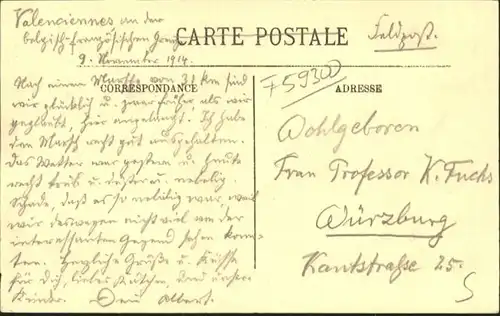 Valenciennes an der
belgisch-französischen Grenze
9. November 1914.
CARTE POSTALE
Feldpost.
F59300
CORRESPONDANCE
ADRESSE
Nach einem Marsche von 31 km sind
wir glücklich u. zwar früher als wir
geglaubt, hier angelangt. Ich habe
den Marsch recht gut ausgehalten.
Das Wetter war gestern u. heute
recht trüb u. düster u. nebelig.
Schade, daß es so nebelig war, weil
wir deswegen nicht viel von der
interessanten Gegend sehen konn-
ten. Herzliche Grüße u. Küsse
für Dich, liebes Kätchen, und unsere
Kinder. Dein Albert.
Wohlgeboren
Frau Professor K. Fuchs
Würzburg
Kantstraße 25.